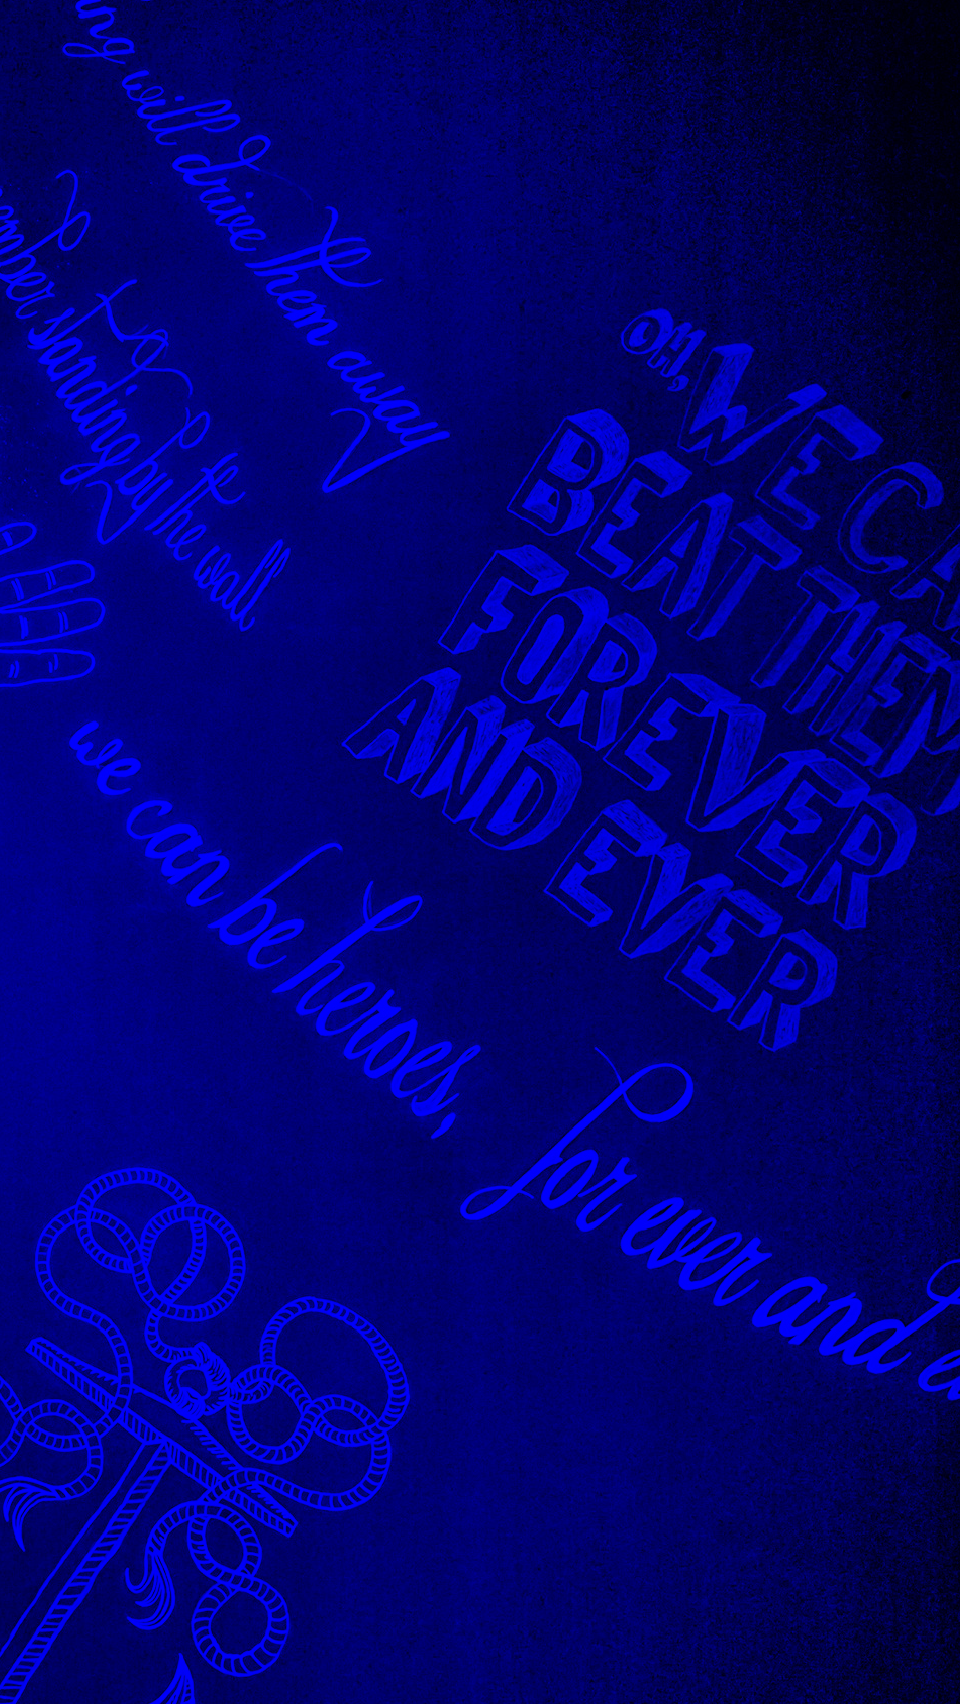 will drive them away
standing by the wall
OH, WE
BEAT THEM
FOREVER
AND EVER
we can be heroes,
for ever and